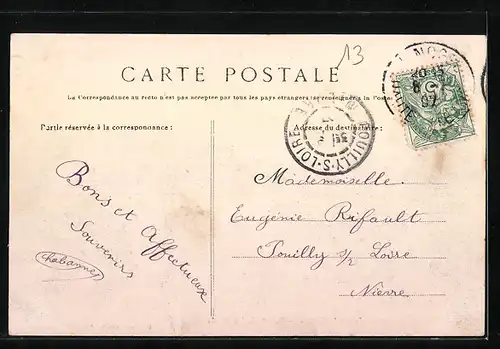 13
CARTE POSTALE
La Correspondance au recto n'est pas acceptée par tous les pays étrangers (se renseigner à la Poste)
Partie réservée à la correspondance:
Adresse du destinataire:
POUILLY-S-LOIRE
Bons et affectueux
Souvenirs
Chabannes
Mademoiselle
Eugénie Rifault
Pouilly s/ Loire
Nièvre